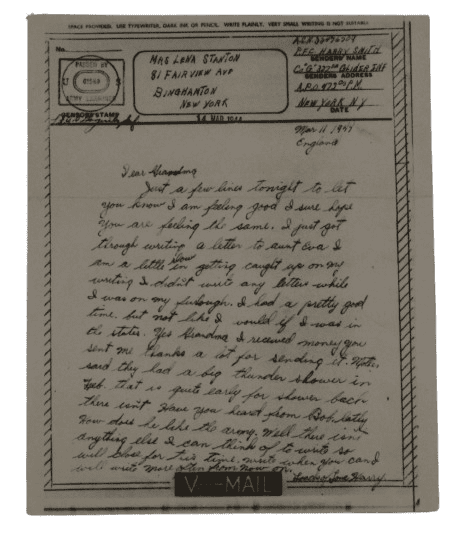 SPACE PROVIDED. USE TYPEWRITER, DARK INK OR PENCIL. WRITE PLAINLY. VERY SMALL WRITING IS NOT SUITABLE
No.
PASSED BY
U S
ARMY EXAMINER
MRS LENA STANTON
81 FAIRVIEW AVE
BINGHAMTON
NEW YORK
P.F.C. HARRY SMITH
SENDER'S NAME
SENDER'S ADDRESS
NEW YORK N.Y
DATE
CENSOR'S STAMP
Mar 11
England
Dear Grandma
Just a few lines tonight to let
you know I am feeling good I sure hope
you are feeling the same. I just got
through writing a letter to aunt Eva I
am a little slow in getting caught up on my
writing I didn't write any letters while
I was on my furlough. I had a pretty good
time. but not like I would if I was in
the states. Yes Grandma I received money you
sent me thanks a lot for sending it.
said they had a big thunder shower in
Feb. that is quite early for shower back
there isnt Have you heard from Bob lately
How does he like the army. Well there isnt
anything else I can think of to write so
will close for this time. write when you can I
will write more often from now on.
Love Harry
V-MAIL